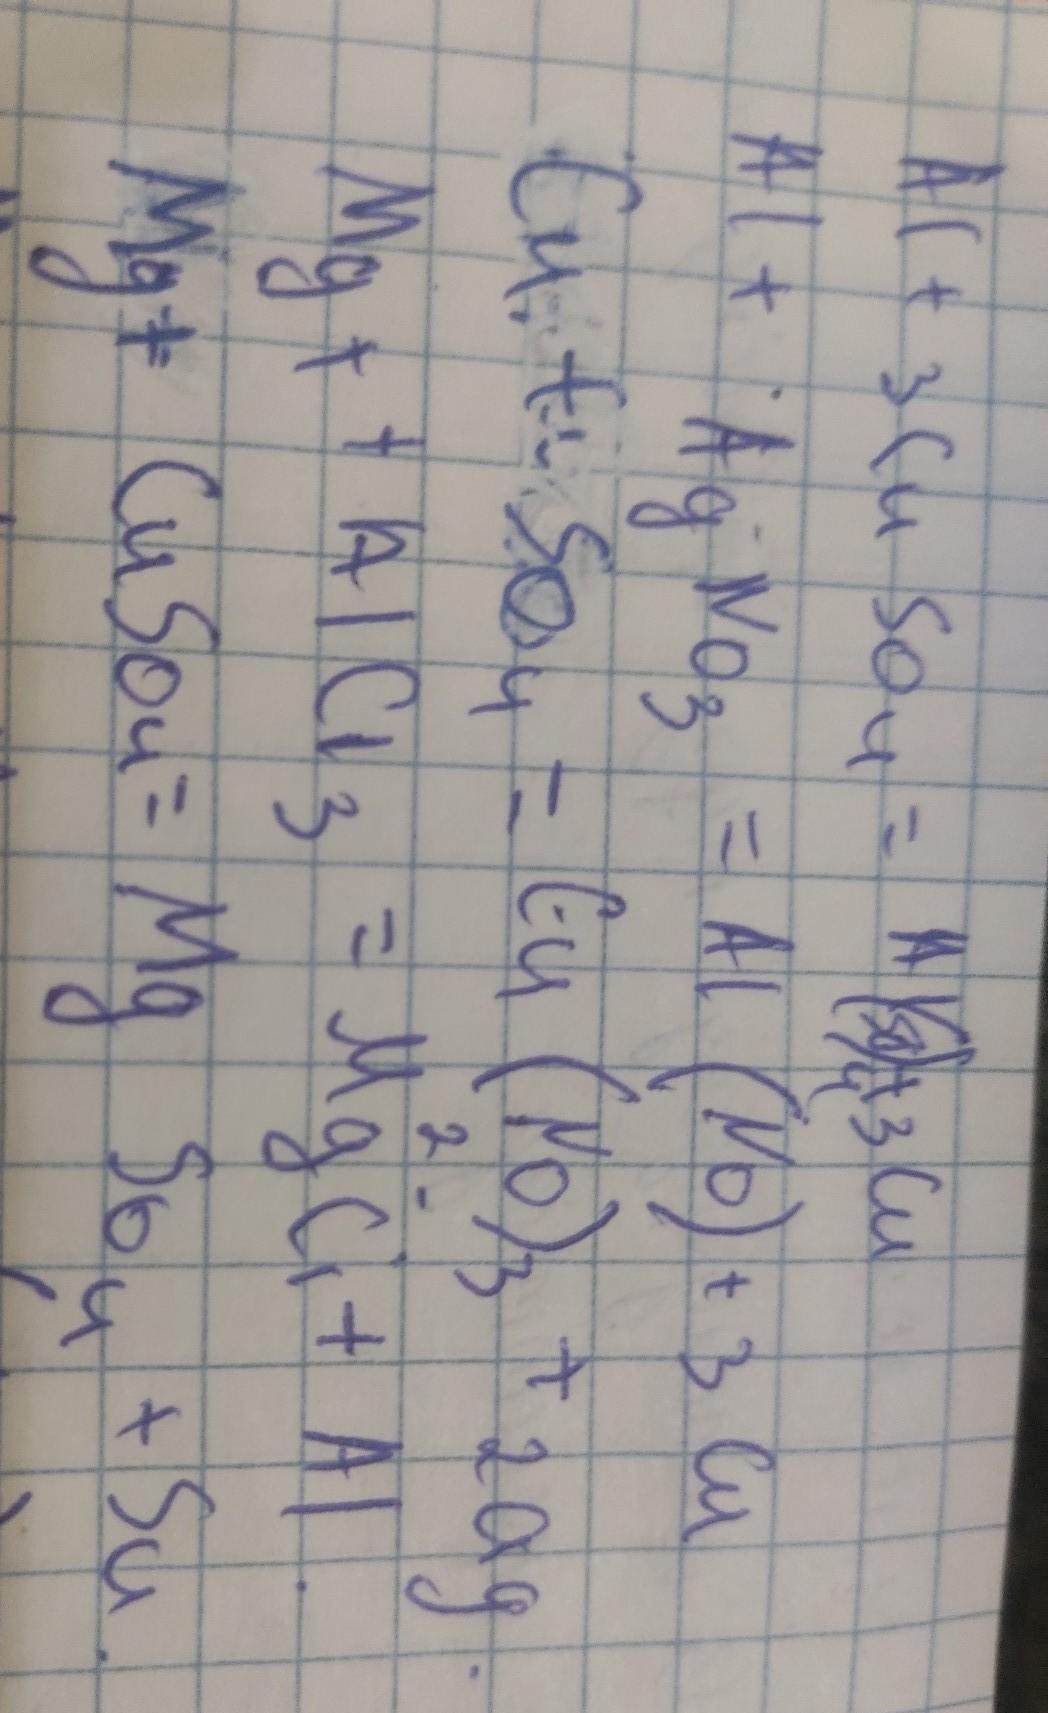 Al + 3CuSO4 = Al(SO)4 + 3Cu
Al + AgNO3 = Al (NO) + 3 Cu
Cu + SO4 = Cu (NO)3 + 2Ag
Mg + + AlCl3 = MgCl2 + Al
Mg + CuSO4 = Mg SO4 + Su